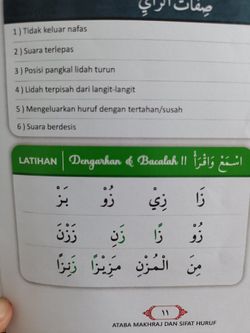 صِفَاتُ الزَّايِ
1 ) Tidak keluar nafas
2 ) Suara terlepas
3 ) Posisi pangkal lidah turun
4 ) Lidah terpisah dari langit-langit
5 ) Mengeluarkan huruf dengan tertahan/susah
6 ) Suara berdesis
LATIHAN Dengarkan & Bacalah !! اسْمَعْ وَاقْرَأْ
زَا زِيْ زُوْ بَزْ
زُوْ زًا زَنِ زَزْنَ
مِنَ الْمُزْنِ مَزِيْزًا زَنِزًا
١١
ATABA MAKHRAJ DAN SIFAT HURUF